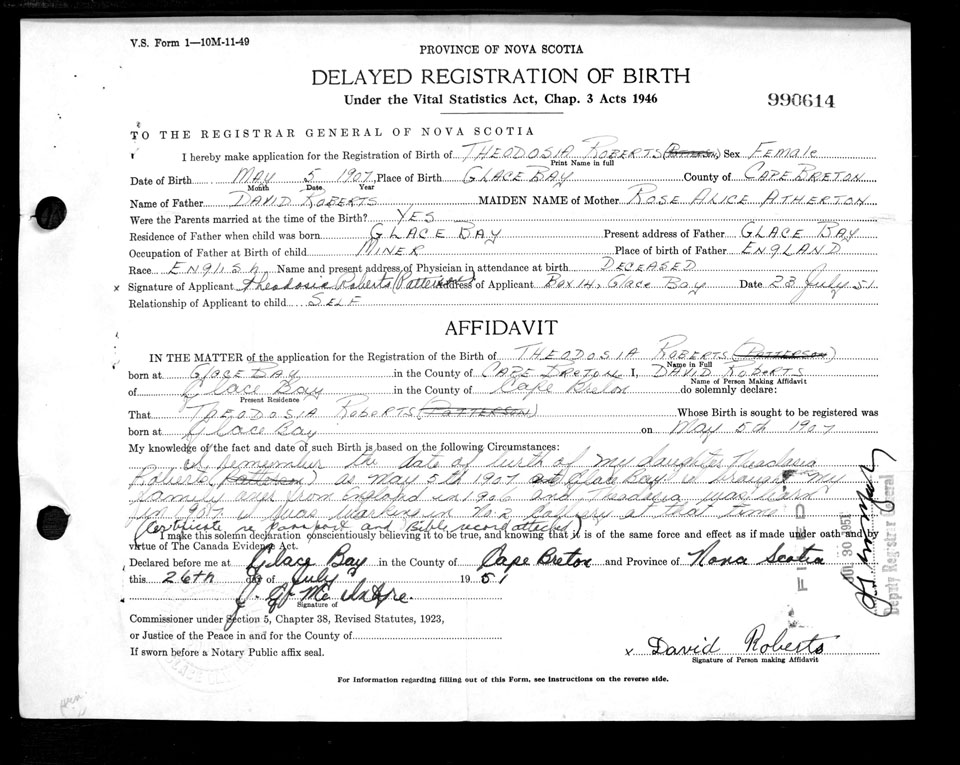 V.S. Form 1—10M-11-49
PROVINCE OF NOVA SCOTIA
DELAYED REGISTRATION OF BIRTH
Under the Vital Statistics Act, Chap. 3 Acts 1946
990614
TO THE REGISTRAR GENERAL OF NOVA SCOTIA
I hereby make application for the Registration of Birth of THEODOSIA ROBERTS Sex FEMALE
Print Name in full
Date of Birth MAY 5 1907, Place of Birth GLACE BAY County of CAPE BRETON
Month Date Year
Name of Father DAVID ROBERTS MAIDEN NAME of Mother ROSE ALICE ATHERTON
Were the Parents married at the time of the Birth? YES
Residence of Father when child was born GLACE BAY Present address of Father GLACE BAY
Occupation of Father at Birth of child MINER Place of birth of Father ENGLAND
Race ENGLISH Name and present address of Physician in attendance at birth DECEASED
x Signature of Applicant Theodosia Roberts (Patterson) Address of Applicant Box 14, Glace Bay Date 23 July 51
Relationship of Applicant to child SELF
AFFIDAVIT
IN THE MATTER of the application for the Registration of the Birth of THEODOSIA ROBERTS (PATTERSON)
Name in Full
born at GLACE BAY in the County of CAPE BRETON I, DAVID ROBERTS
Name of Person Making Affidavit
of Glace Bay in the County of Cape Breton do solemnly declare:
Present Residence
That THEODOSIA ROBERTS (PATTERSON) Whose Birth is sought to be registered was
born at Glace Bay on May 5th 1907
My knowledge of the fact and date of such Birth is based on the following Circumstances:
I remember the date of birth of my daughter Theodosia
Roberts (Patterson) as May 5th 1907 at Glace Bay I brought my
family from England in 1906 and Theodosia was born
in 1907 I was working in No. 2 Colliery at that time
(Certificate re passport and Bible record attached)
I make this solemn declaration conscientiously believing it to be true, and knowing that it is of the same force and effect as if made under oath and by
virtue of The Canada Evidence Act.
Declared before me at Glace Bay in the County of Cape Breton and Province of Nova Scotia
this 26th day of July 1951
J. McIntyre
Signature of
Commissioner under Section 5, Chapter 38, Revised Statutes, 1923,
or Justice of the Peace in and for the County of
If sworn before a Notary Public affix seal.
x David Roberts
Signature of Person making Affidavit
For Information regarding filling out of this Form, see Instructions on the reverse side.
FILED
JUL 30 1951
Deputy Registrar General